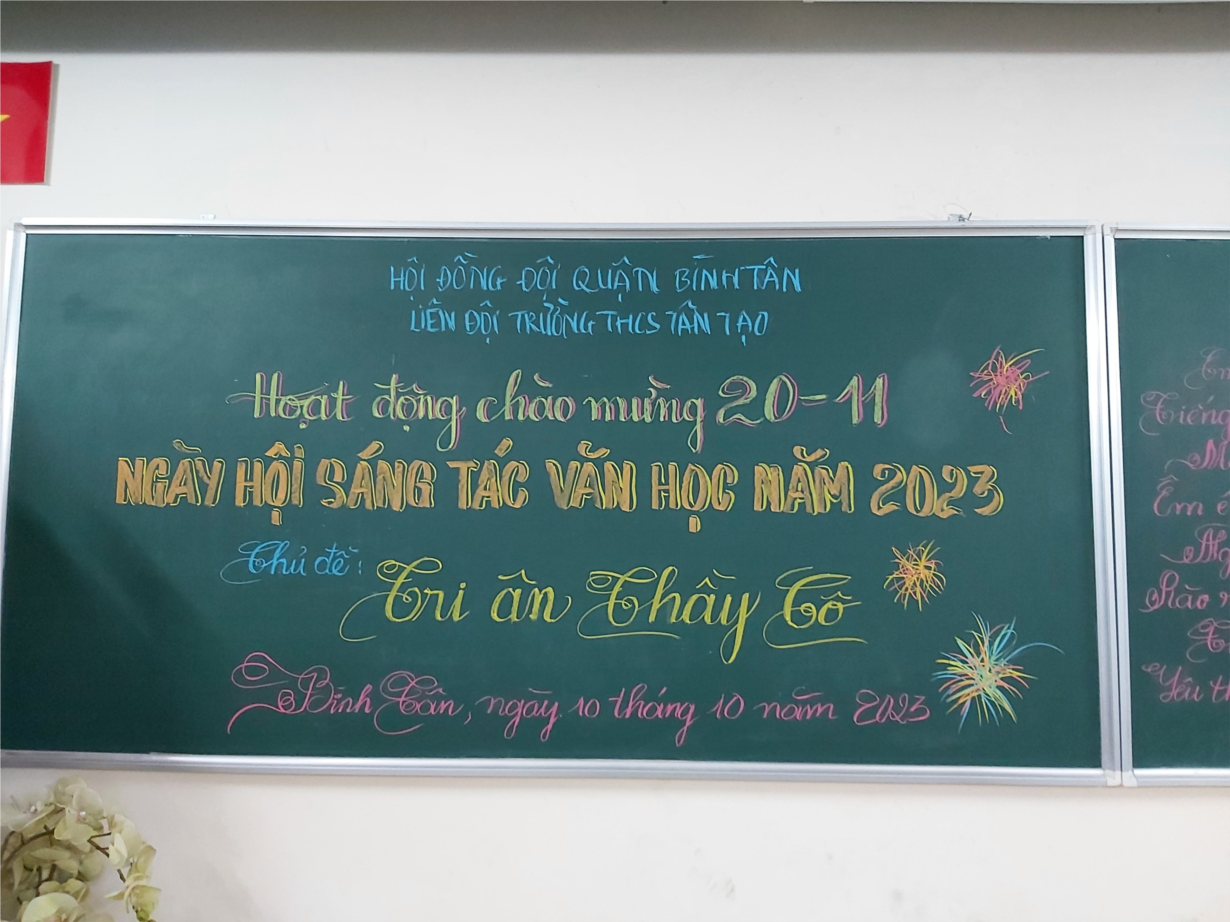 HỘI ĐỒNG ĐỘI QUẬN BÌNH TÂN
LIÊN ĐỘI TRƯỜNG THCS TÂN TẠO
Hoạt động chào mừng 20-11
NGÀY HỘI SÁNG TÁC VĂN HỌC NĂM 2023
Chủ đề:
Tri ân Thầy Cô
Bình Tân, ngày 10 tháng 10 năm 2023
Tiếng
Êm
Yêu